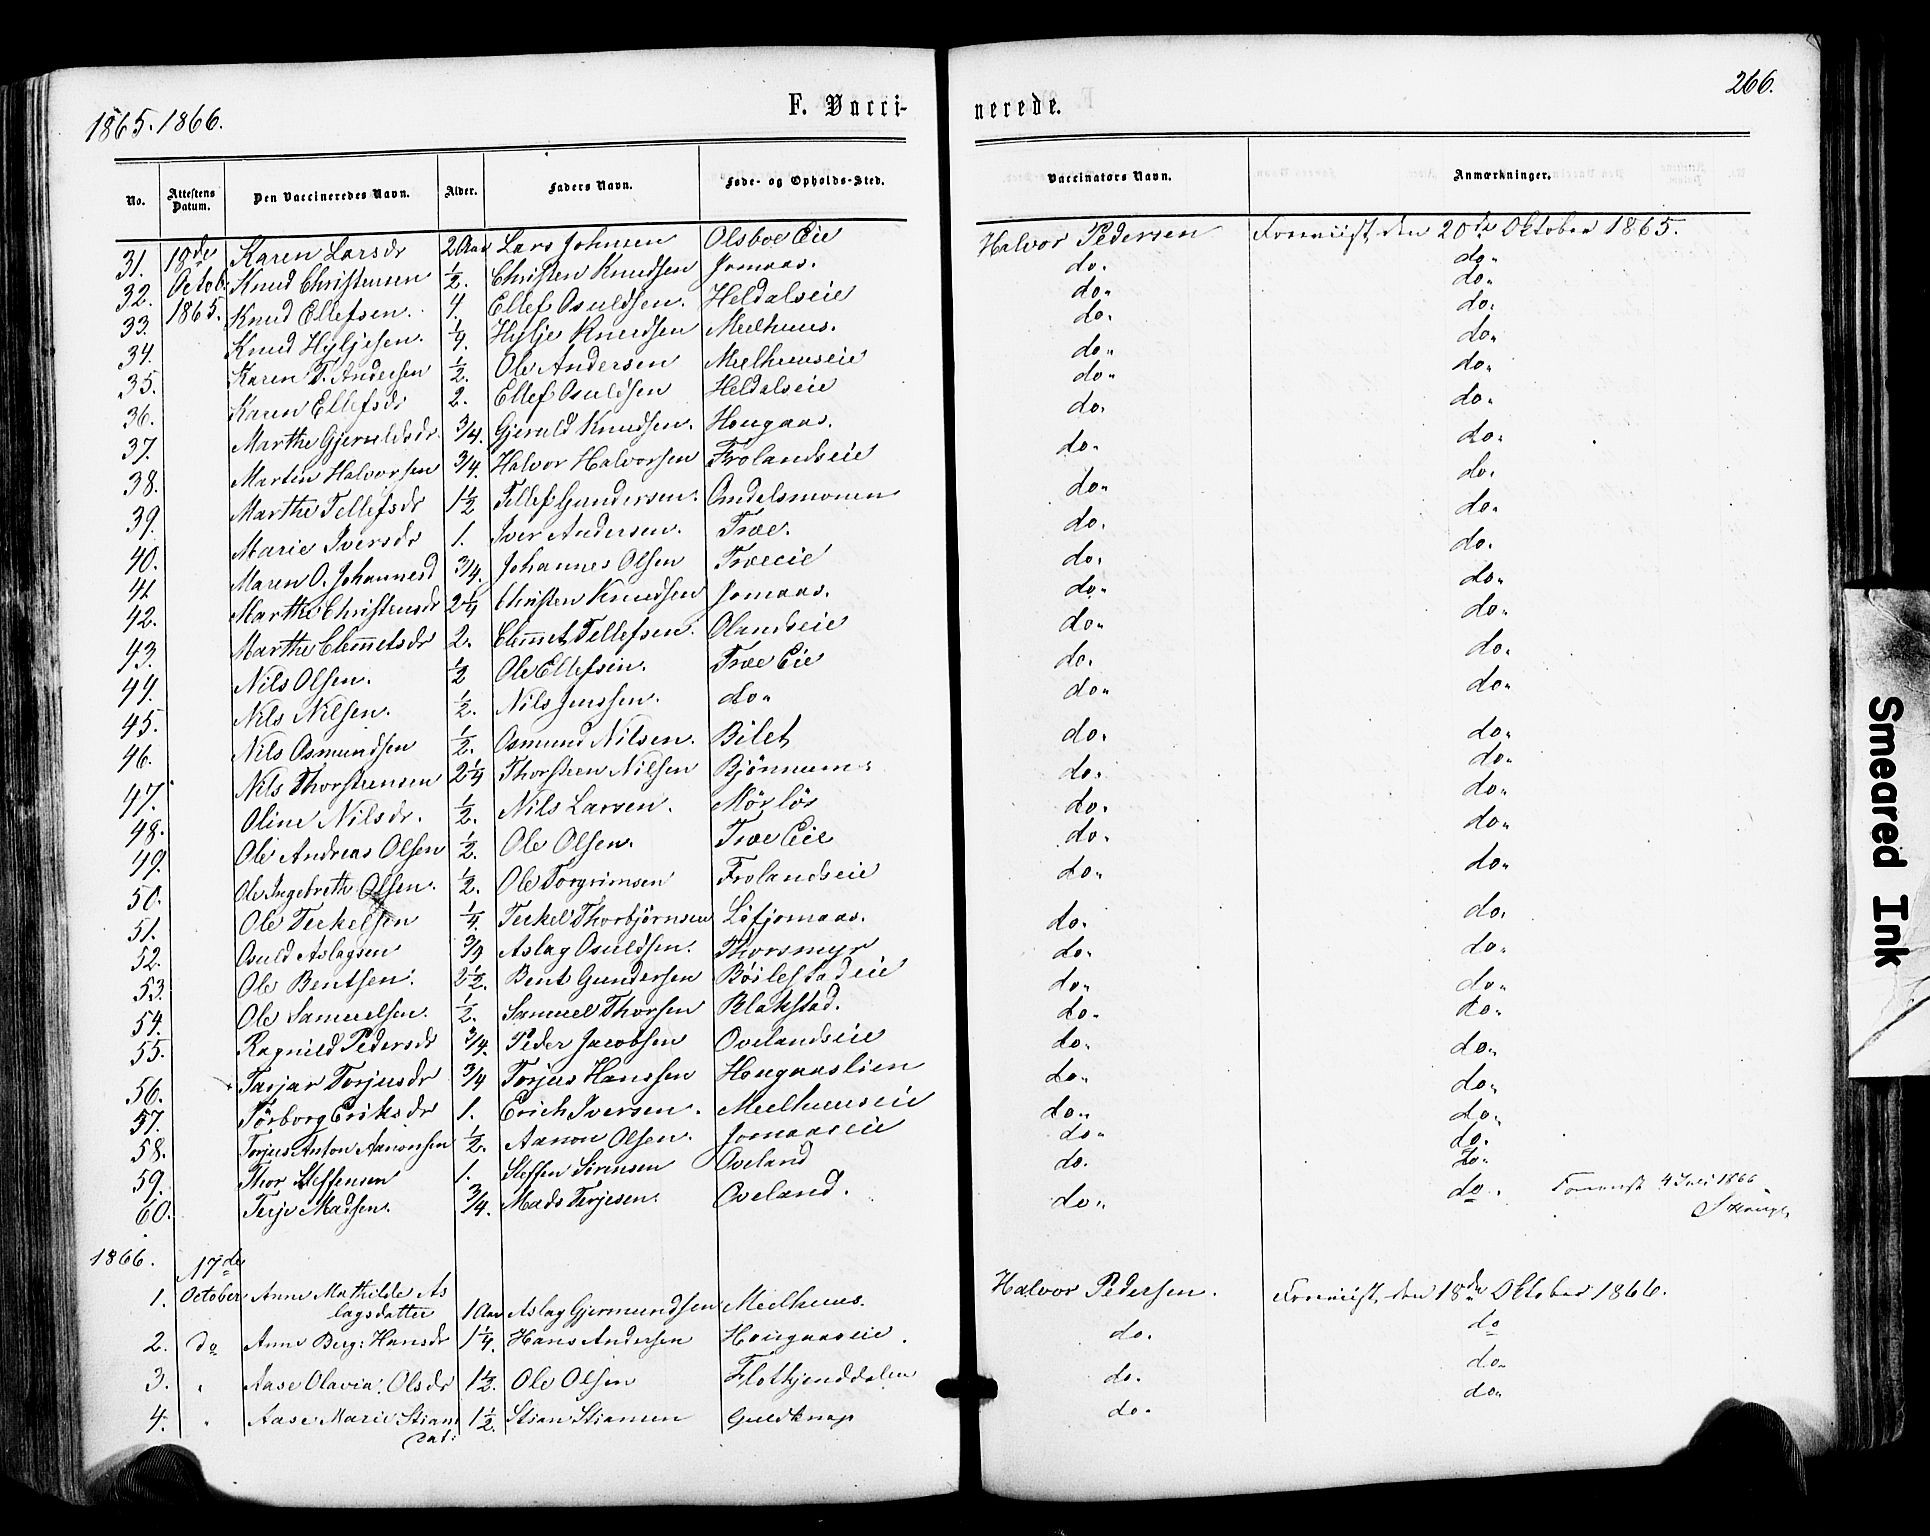 1865. 1866.
F. Vacci-
nerede.
266.
No. Attestens Datum. Den Vaccineredes Navn. Alder. Faders Navn. Føde- og Opholds-Sted. Vaccinators Navn. Anmærkninger.
31. 18de Karen Larsdr 2 Aar Lars Johnsen Olsboe Eie Halvor Pedersen Foreviist den 20de Oktober 1865.
32. Octob. Knud Christensen 1/2. Christen Knudsen Jomaas. do. do.
33. 1865. Knud Ellefsen. 4. Ellef Osuldsen. Heldalseie do. do.
34. Knud Hyljesen. 1/4. Hylje Knudsen Meelhuus. do. do.
35. Karen T. Andersen 1/2. Ole Andersen Meelhuuseie do. do.
36. Karen Ellefsdr 2. Ellef Osuldsen Heldalseie do. do.
37. Marthe Gjeruldsdr. 3/4. Gjeruld Knudsen. Hougaas. do. do.
38. Marten Halvorsen 3/4. Halvor Halvorsen Frolandseie do. do.
39. Marthe Tellefsdr 1 1/2 Tellef Gundersen. Osedalsmonen do. do.
40. Marie Iversdr 1. Iver Andersen. Træe. do. do.
41 Maren O. Johannesd 3/4. Johannes Olsen Træeie do. do.
42. Marthe Christensdr 2 1/4 Christen Knudsen Jomaas. do. do.
43. Marthe Clem̅etsdr 2. Clem̅et Tellefsen. Olandseie do. do.
44. Nils Olsen. 1/2 Ole Ellefsen. Træe Eie do. do.
45. Nils Nilsen. 1/2. Nils Jensen. do. do. do.
46. Nils Osmundsen 1/2. Osmund Nilsen. Bilet do. do.
47. Nils Thorstensen 2 1/4 Thorsten Nilsen Bjönnum. do. do.
48. Oline Nilsdr. 1/2. Nils Larsen. Mörlös do. do.
49. Ole Andreas Olsen 1/2. Ole Olsen. Træe Eie do. do.
50. Ole Ingebreth Olsen. 1/2. Ole Torgrimsen Frolandseie do. do.
51. Ole Terkelsen 1/4. Terkel Thorbjörnsen Löfjomaas. do. do.
52. Osuld Aslagsen 3/4 Aslag Osuldsen. Thorsmyr do. do.
53. Ole Bentsen. 2 1/2. Bent Gundersen Böilestadeie do. do.
54. Ole Samuelsen. 1/2. Samuel Thorsen Blakstad. do. do.
55. Ragnild Pedersdr 3/4. Peder Jacobsen Ovelandseie do. do.
56. Tarjar Torjusdr 3/4 Torjus Hanssen Hougaaslien do. do.
57. Törborg Eriksdr 1. Erich Iversen. Meelhuuseie do. do.
58. Torjus Anton Aanonsen 1/2. Aanon Olsen. Jomaaseie do. do.
59. Thor Steffensen 1. Steffen Sörensen Oveland do. do.
60. Terje Madsen. 3/4. Mads Terjesen. Oveland. do. do. Foreviist 4 Juli 1866
1866. 17de
1. October Anne Mathilde As
lagsdatter 1 Aar Aslag Gjermundsen Meelhuus. Halvor Pedersen. Foreviist den 18de Oktober 1866.
2. do Anne Berg: Hansdr 1 1/4. Hans Andersen Hougaaseie. do. do
3. " Aase Olavia Olsdr 1 1/2. Ole Olsen Flotkjenddalen do. do.
4. " Aase Marie Stians
dat: 1 1/2. Stian Stiansen Guldknap do. do.
Smeared Ink